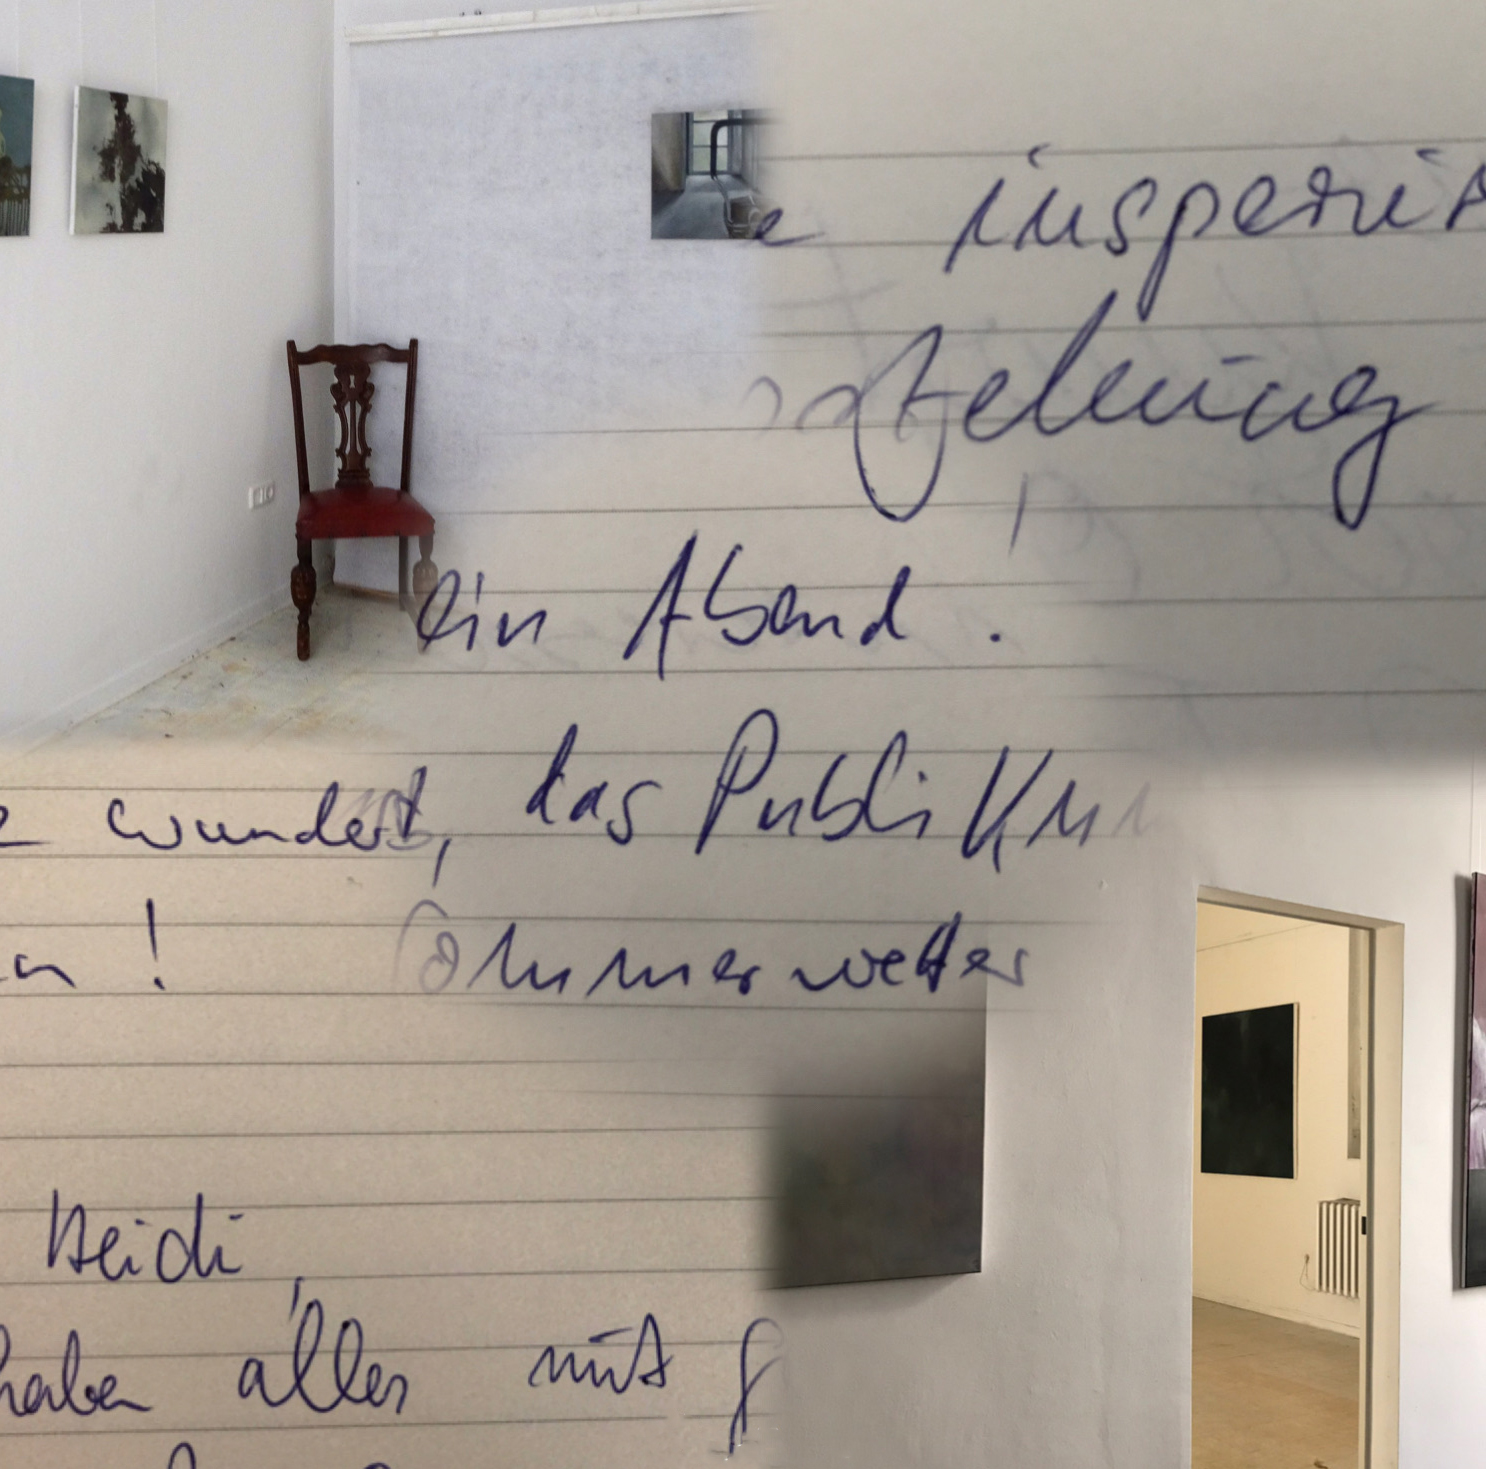 inspiriert
stellung
ein Abend.
wundert, das Publikum
! Sommerwetter
Heidi,
haben alles mit